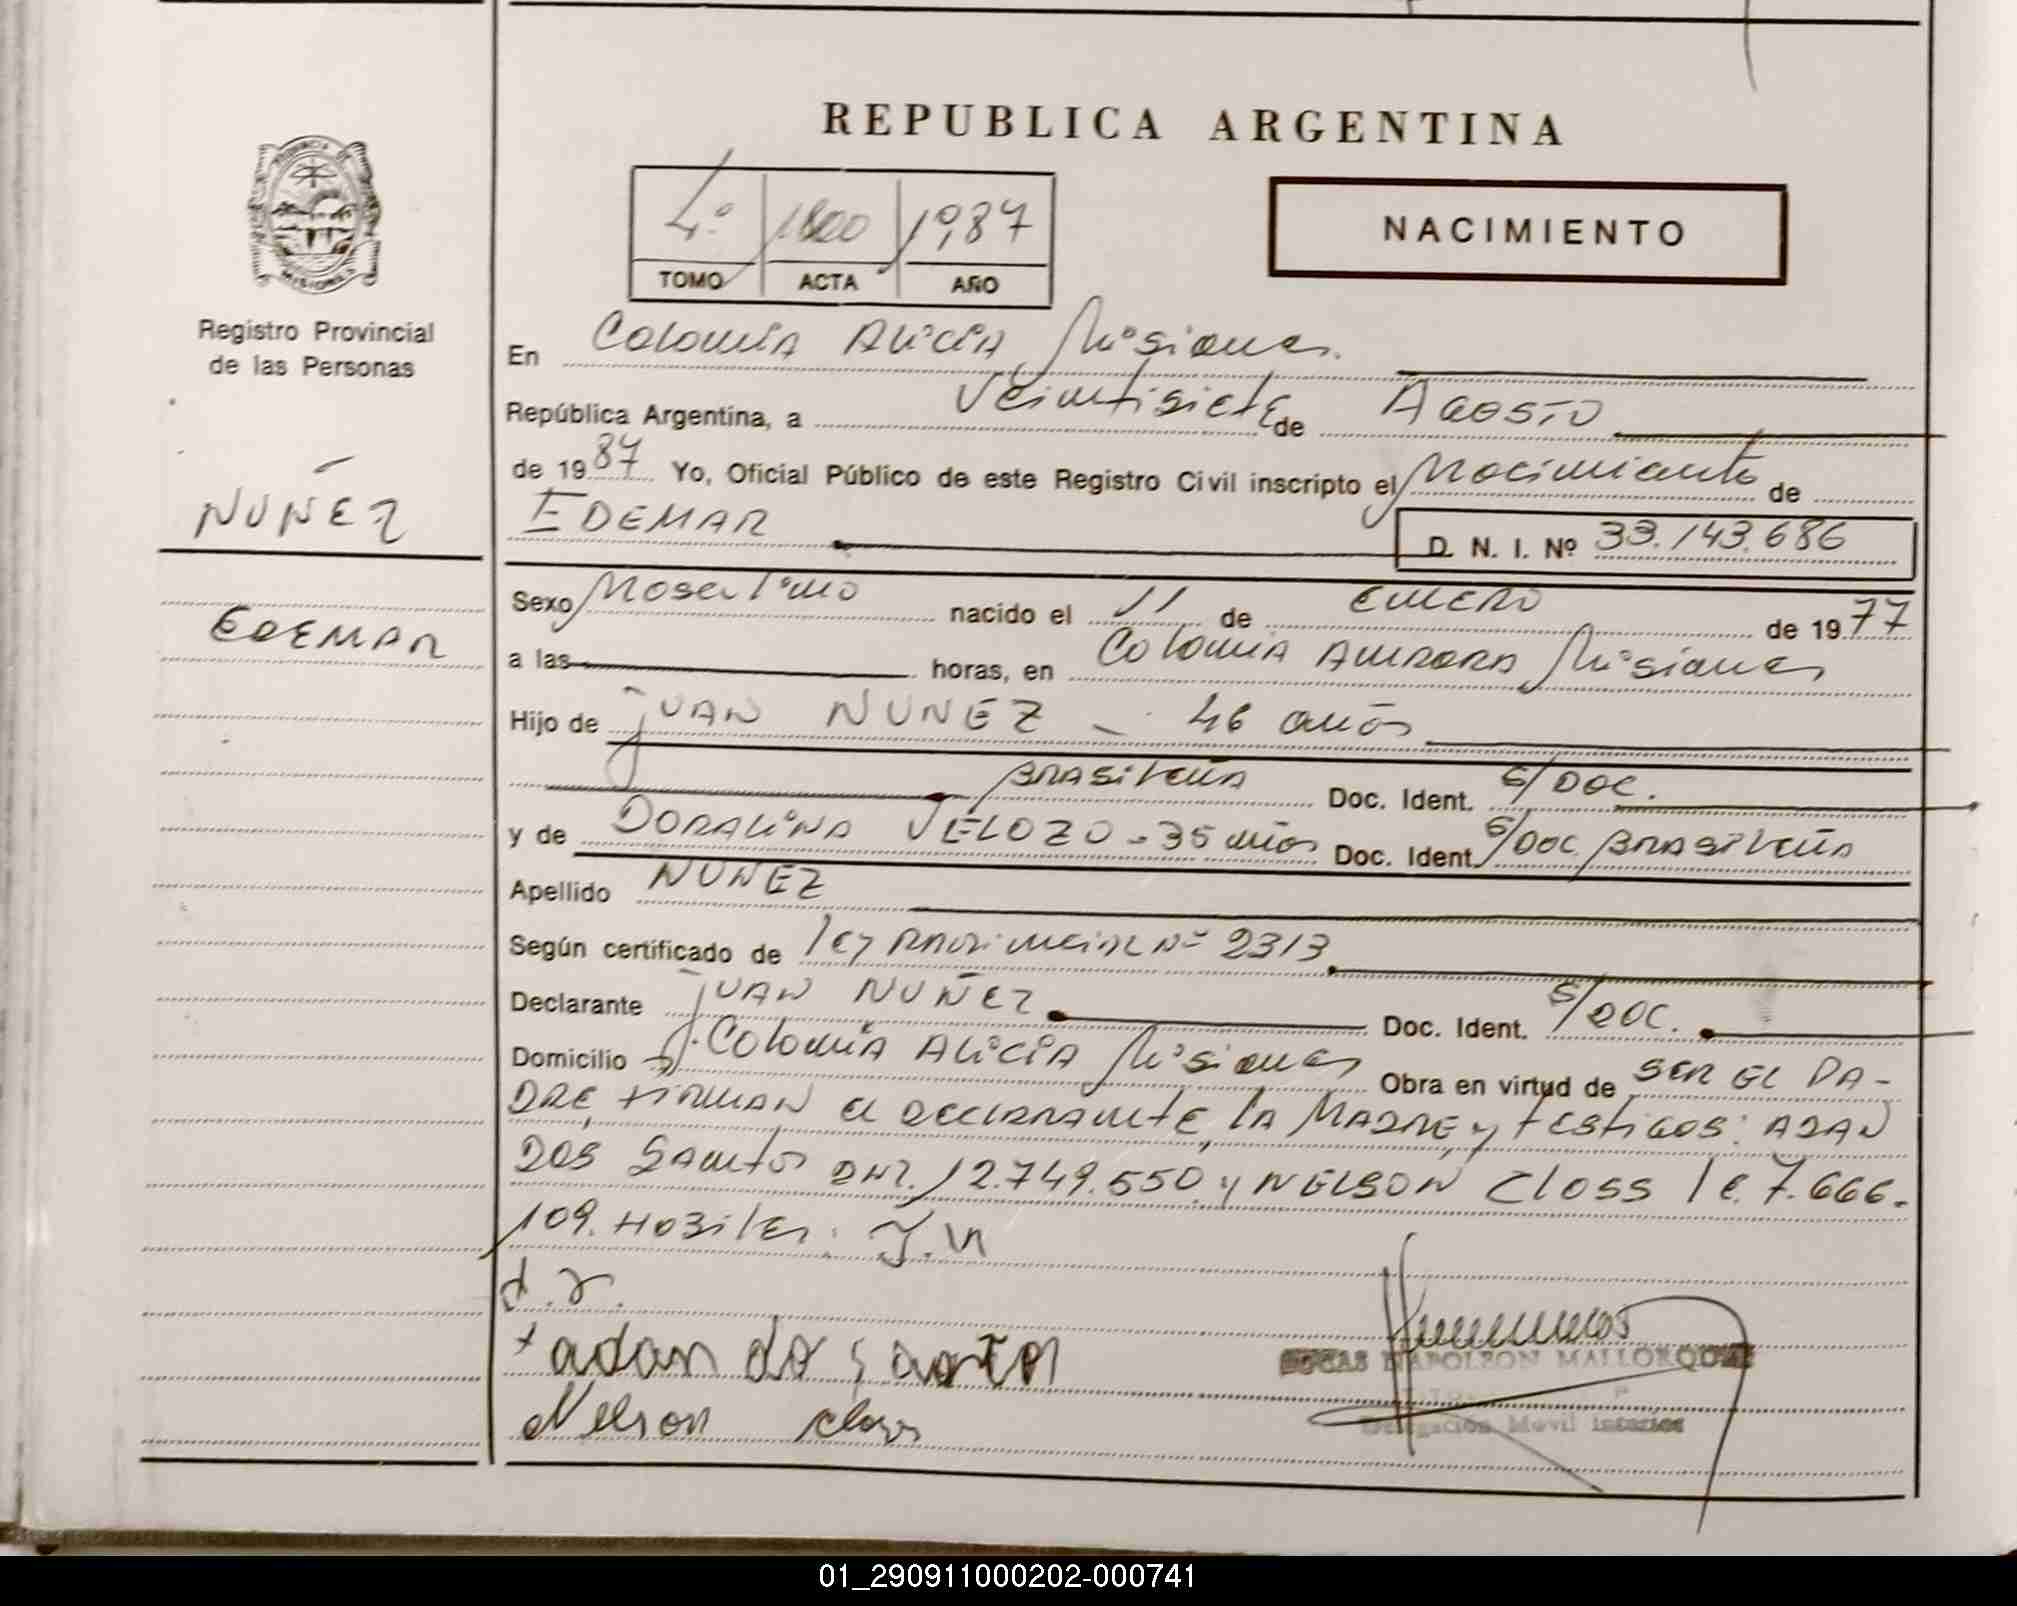 REPUBLICA ARGENTINA
PROVINCIA DE
MISIONES
Registro Provincial
de las Personas
4º 1800 1987
TOMO ACTA AÑO
NACIMIENTO
En Colonia Alicia, Misiones.
República Argentina, a Veintisiete de Agosto
de 1987 Yo, Oficial Público de este Registro Civil inscripto el Nacimiento de
NUÑEZ
EDEMAR
EDEMAR
D. N. I. Nº 33.143.686
Sexo Masculino nacido el 11 de ENERO de 1977
a las horas, en Colonia Aurora, Misiones
Hijo de JUAN NUÑEZ - 46 años
BRASILEÑA Doc. Ident. S/DOC.
y de DORALINA VELOZO - 35 años Doc. Ident. S/DOC. BRASILEÑA
Apellido NUÑEZ
Según certificado de ley PROVINCIAL Nº 2313
Declarante JUAN NUÑEZ Doc. Ident. S/DOC.
Domicilio Colonia Alicia, Misiones Obra en virtud de SER EL PA-
DRE, FIRMAN el DECLARANTE, LA MADRE y testigos: ADAN
DOS SANTOS DNI. 12.749.550 y NELSON CLOSS le. 7.666.
109. HABiles. J.N
d.v.
+ adan do santos
Nelson closs
NAPOLEON MALLORQUIN
Delegación Movil Interior
01_290911000202-000741